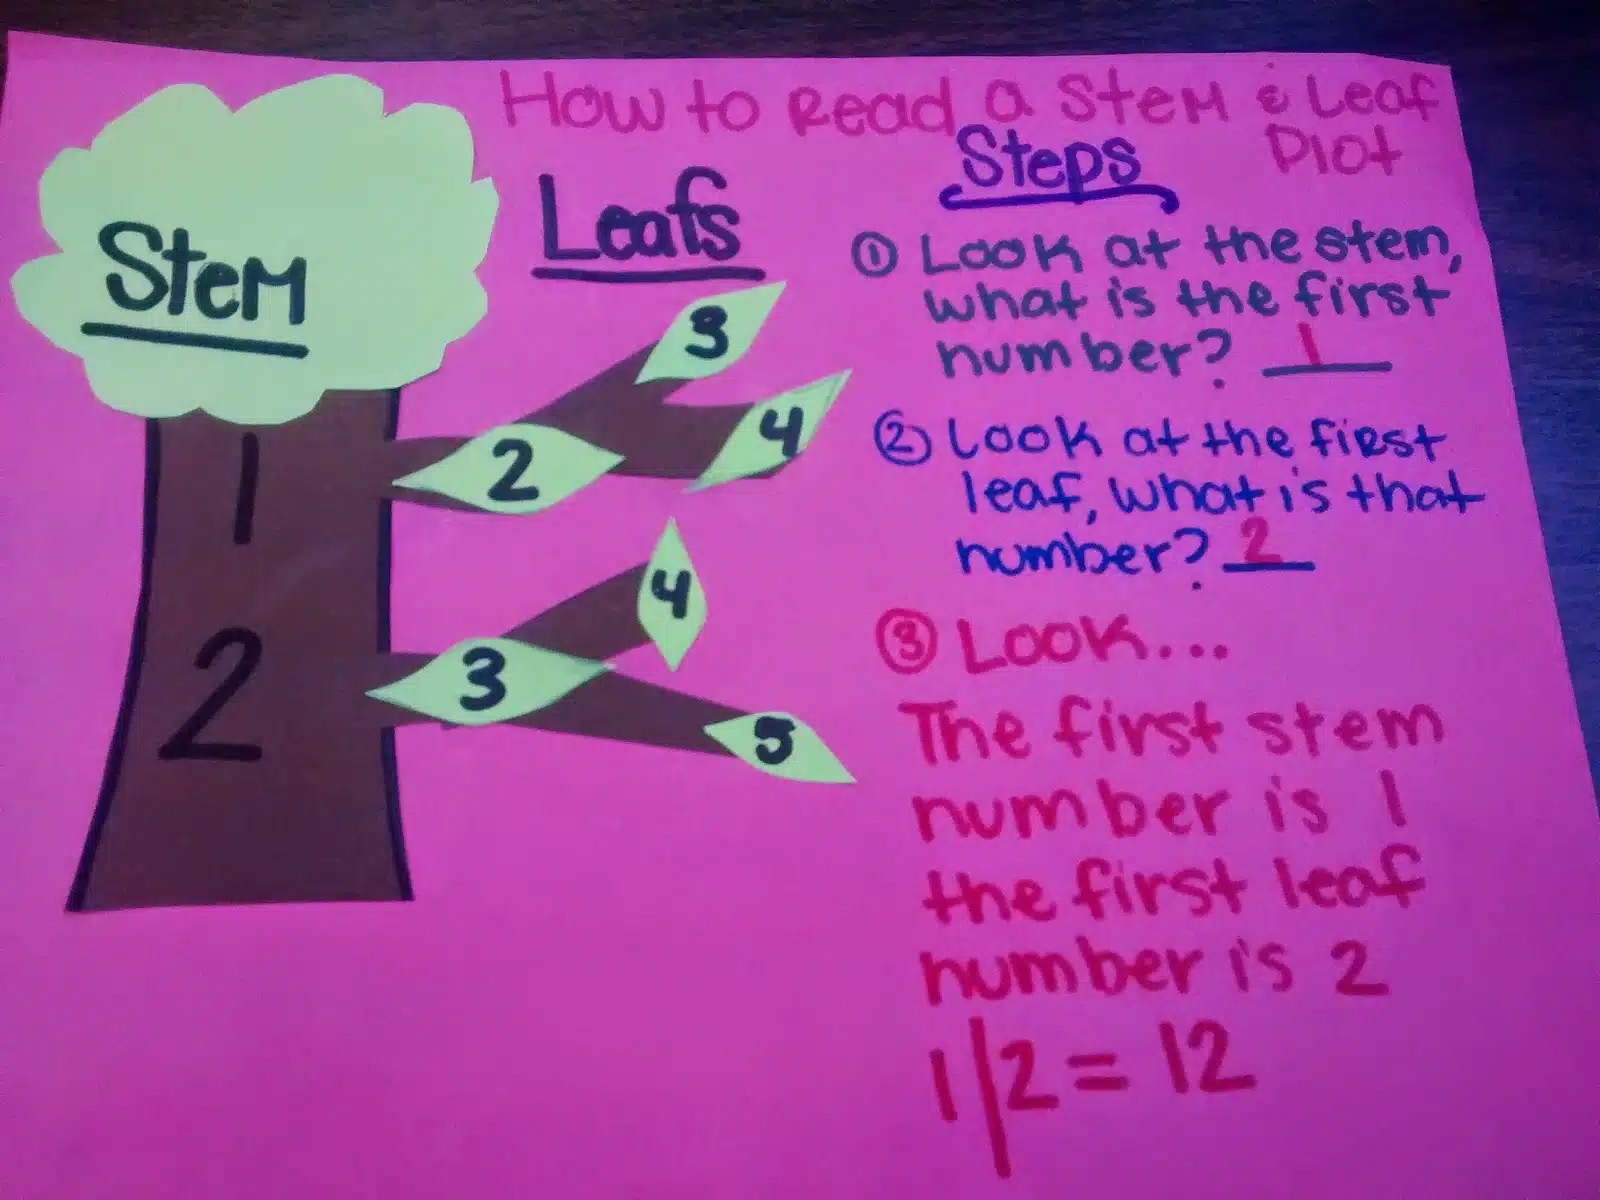 How to Read a Stem & Leaf
Plot
Stem
1
2
Leafs
3
2 4
4
3
5
Steps
① Look at the stem,
what is the first
number? 1
② Look at the first
leaf, what is that
number? 2
③ Look...
The first stem
number is 1
the first leaf
number is 2
1|2 = 12